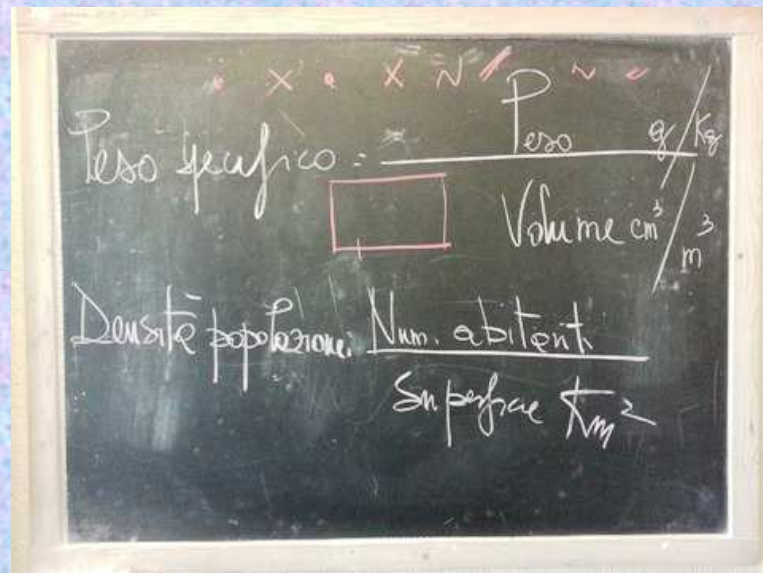 X X N
Peso specifico = Peso g/Kg
Volume cm³/m³
Densità popolazione: Num. abitanti
Superficie Km²